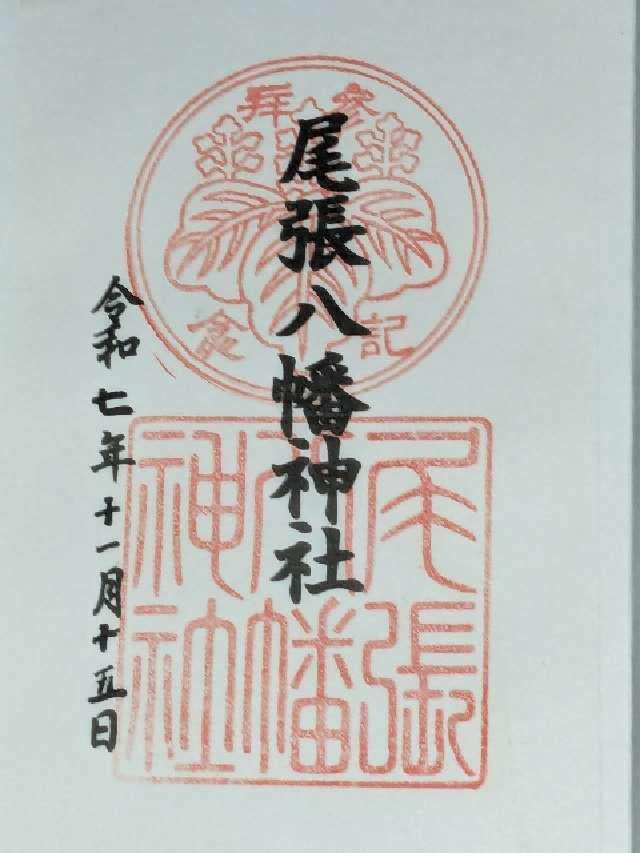 参拝
記念
尾張八幡神社
尾張
八幡
神社
令和七年十一月十五日